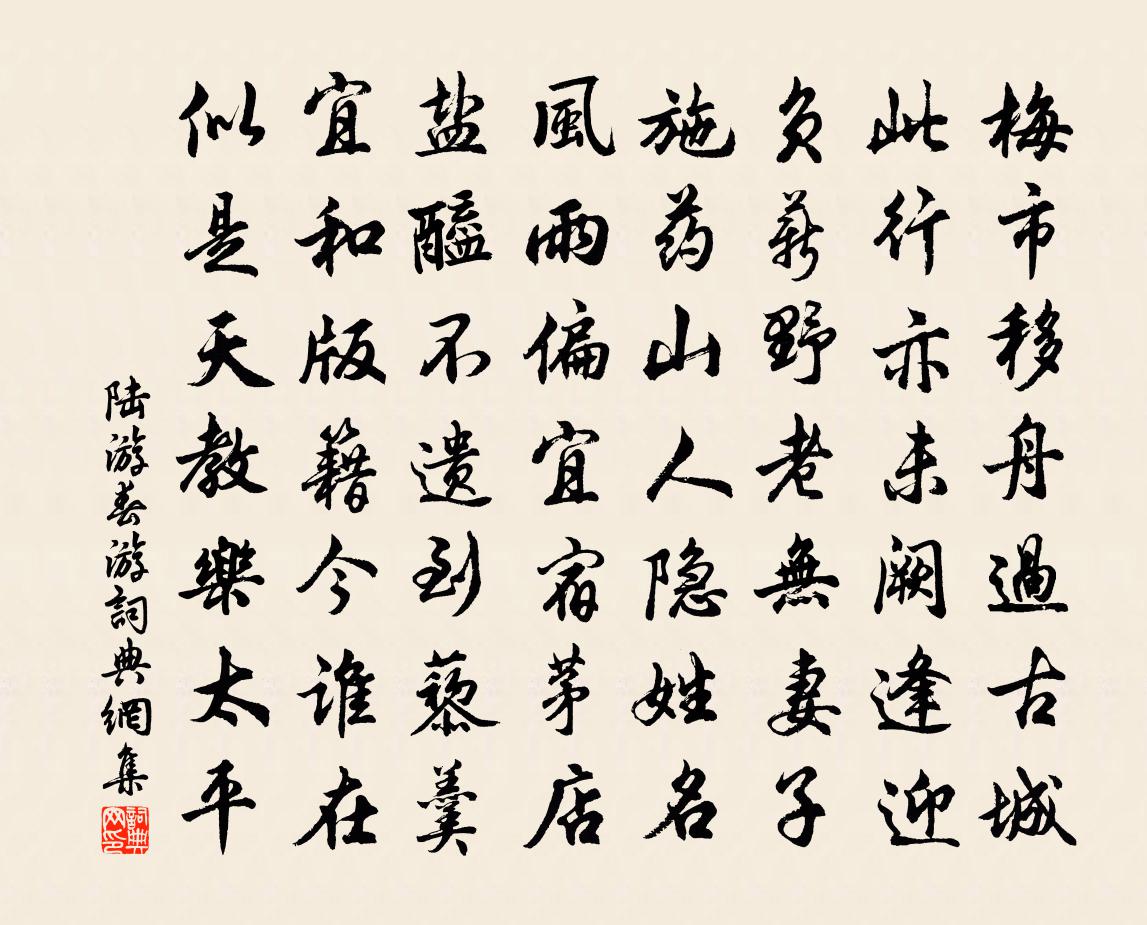 梅市移舟過古城
此行亦未闕逢迎
負薪野老無妻子
施药山人隐姓名
風雨偏宜宿茅店
盐醯不遗到藜羹
宜和版籍今谁在
似是天教樂太平
陆游春游詞典網集
詞典网印